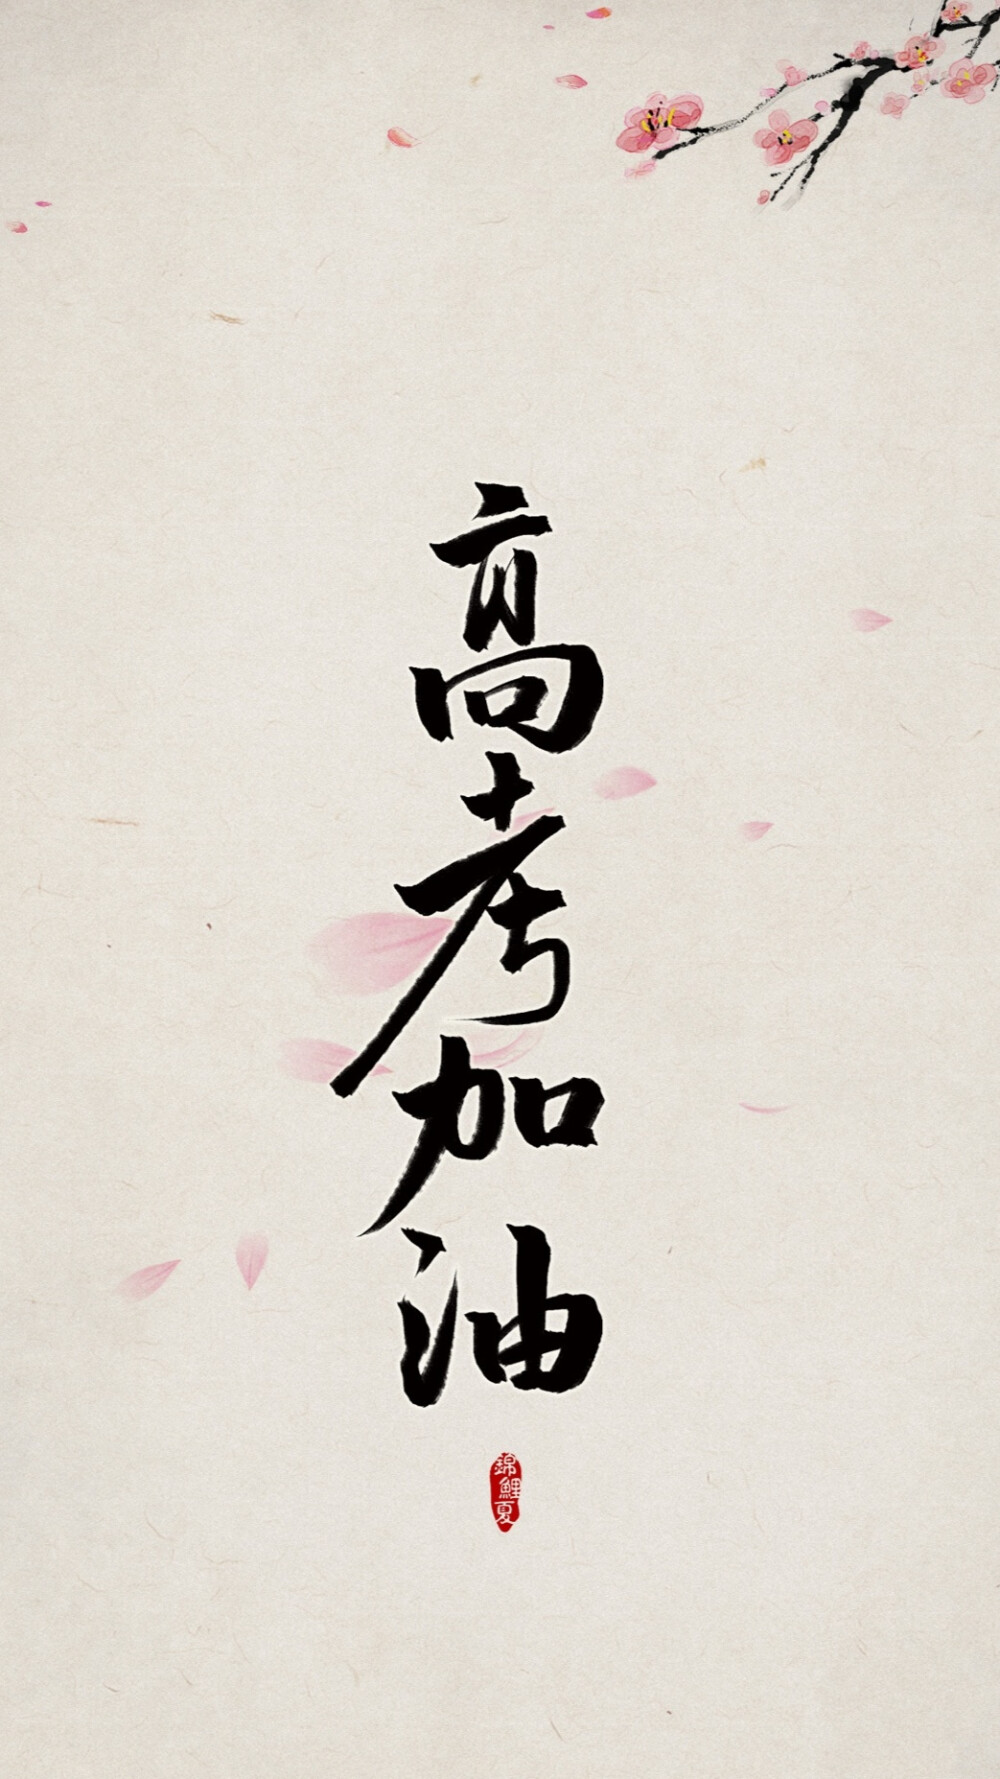 高考加油
錦鯉夏